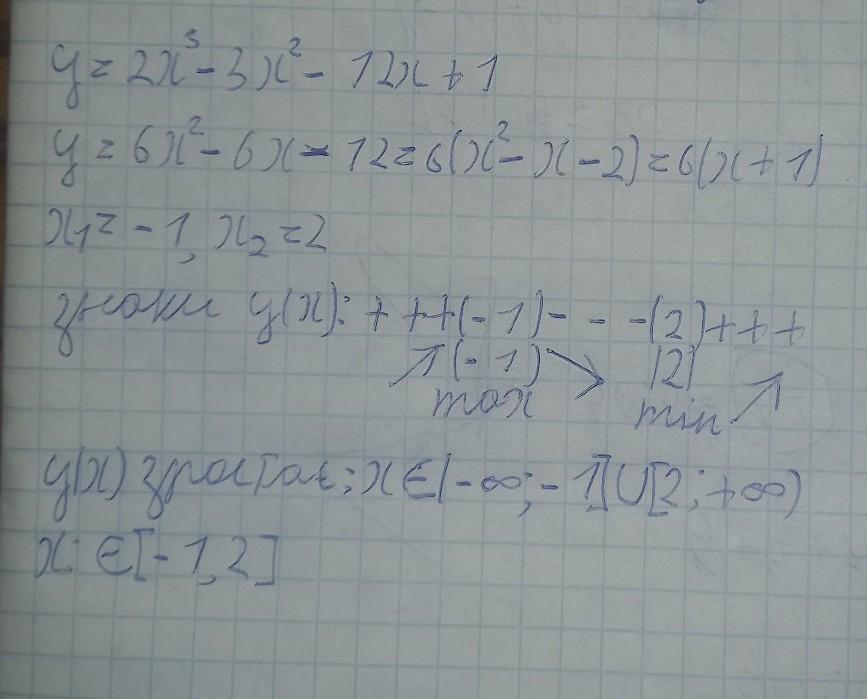 y = 2x³ - 3x² - 12x + 1
y = 6x² - 6x - 12 = 6(x² - x - 2) = 6(x + 1)
x₁ = - 1, x₂ = 2
знаки y(x): + ++(- 1)- - -(2)+++
↗(- 1)↘ |2|
max min ↗
y(x) зростає: x∈(-∞;- 1]∪[2;+∞)
x: ∈[- 1,2]